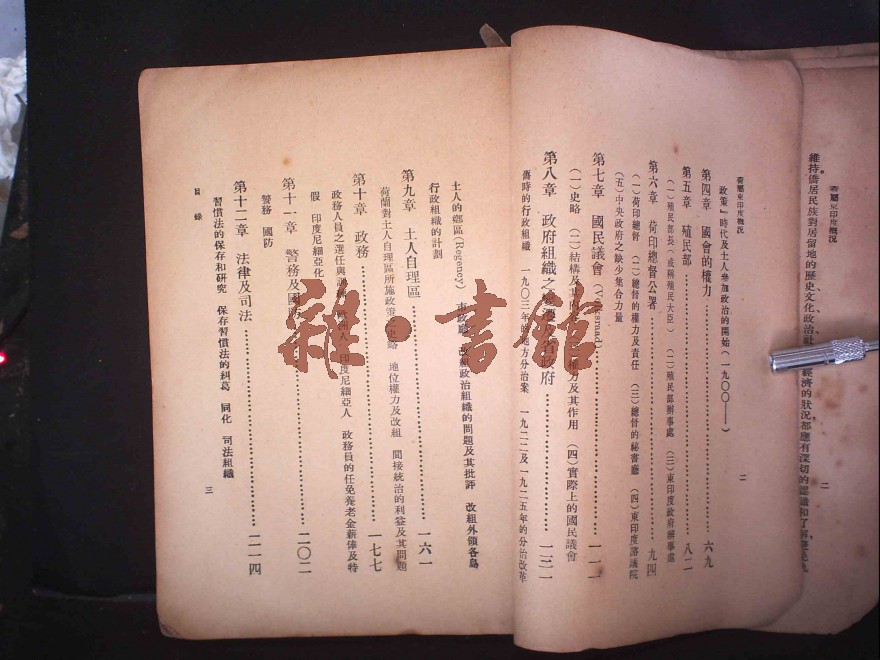 維持僑居民族對居留地的歷史文化、政治、經濟的狀況都應有深切的認識和了解
二
荷屬東印度概況
荷屬東印度概況
二
政策」時代及土人參加政治的開始(一九〇〇——)
第四章 國會的權力 六九
第五章 殖民部 八二
(一)殖民部長(或稱殖民大臣) (二)殖民部辦事處 (三)東印度政府辦事處
第六章 荷印總督公署 九四
(一)荷印總督 (二)總督的權力及責任 (三)總督的秘書廳 (四)東印度諮議院
(五)中央政府之缺少集合力量
第七章 國民議會(Volksraad) 一一一
(一)史略 (二)結構及 權力及其作用 (四)實際上的國民議會
第八章 政府組織之 省政府 一三一
舊時的行政組織 一九〇三年的地方分治案 一九二二及一九二五年的分治改革
土人的郡區(Regency) 市政廳 改組政治組織的問題及其批評 改組外領各島
行政組織的計劃
第九章 土人自理區 一六一
荷蘭對土人自理區所施政策之史略 地位權力及改組 間接統治的利益及其問題
第十章 政務 一七七
政務人員之選任與訓練 歐洲人 印度尼細亞人 政務員的任免養老金薪俸及特
假 印度尼細亞化
第十一章 警務及國防 二〇二
警務 國防
第十二章 法律及司法 二一四
習慣法的保存和研究 保存習慣法的糾葛 同化 司法組織
目錄
三
雜·書館